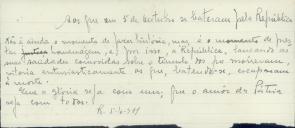 Aos que em 5 de Outubro se bateram pela República
Não é ainda o momento de para história, mas é o momento de pres
tar homenagem, e, por isso, a República, lançando as
suas saudades comovidas sobre o tumulo dos que morreram,
vitoria entusiasticamente os que, batendo-se, escaparam
á morte.
Que a gloria seja com uns, que o amôr da Patria
seja com todos.
R. 5-X-911